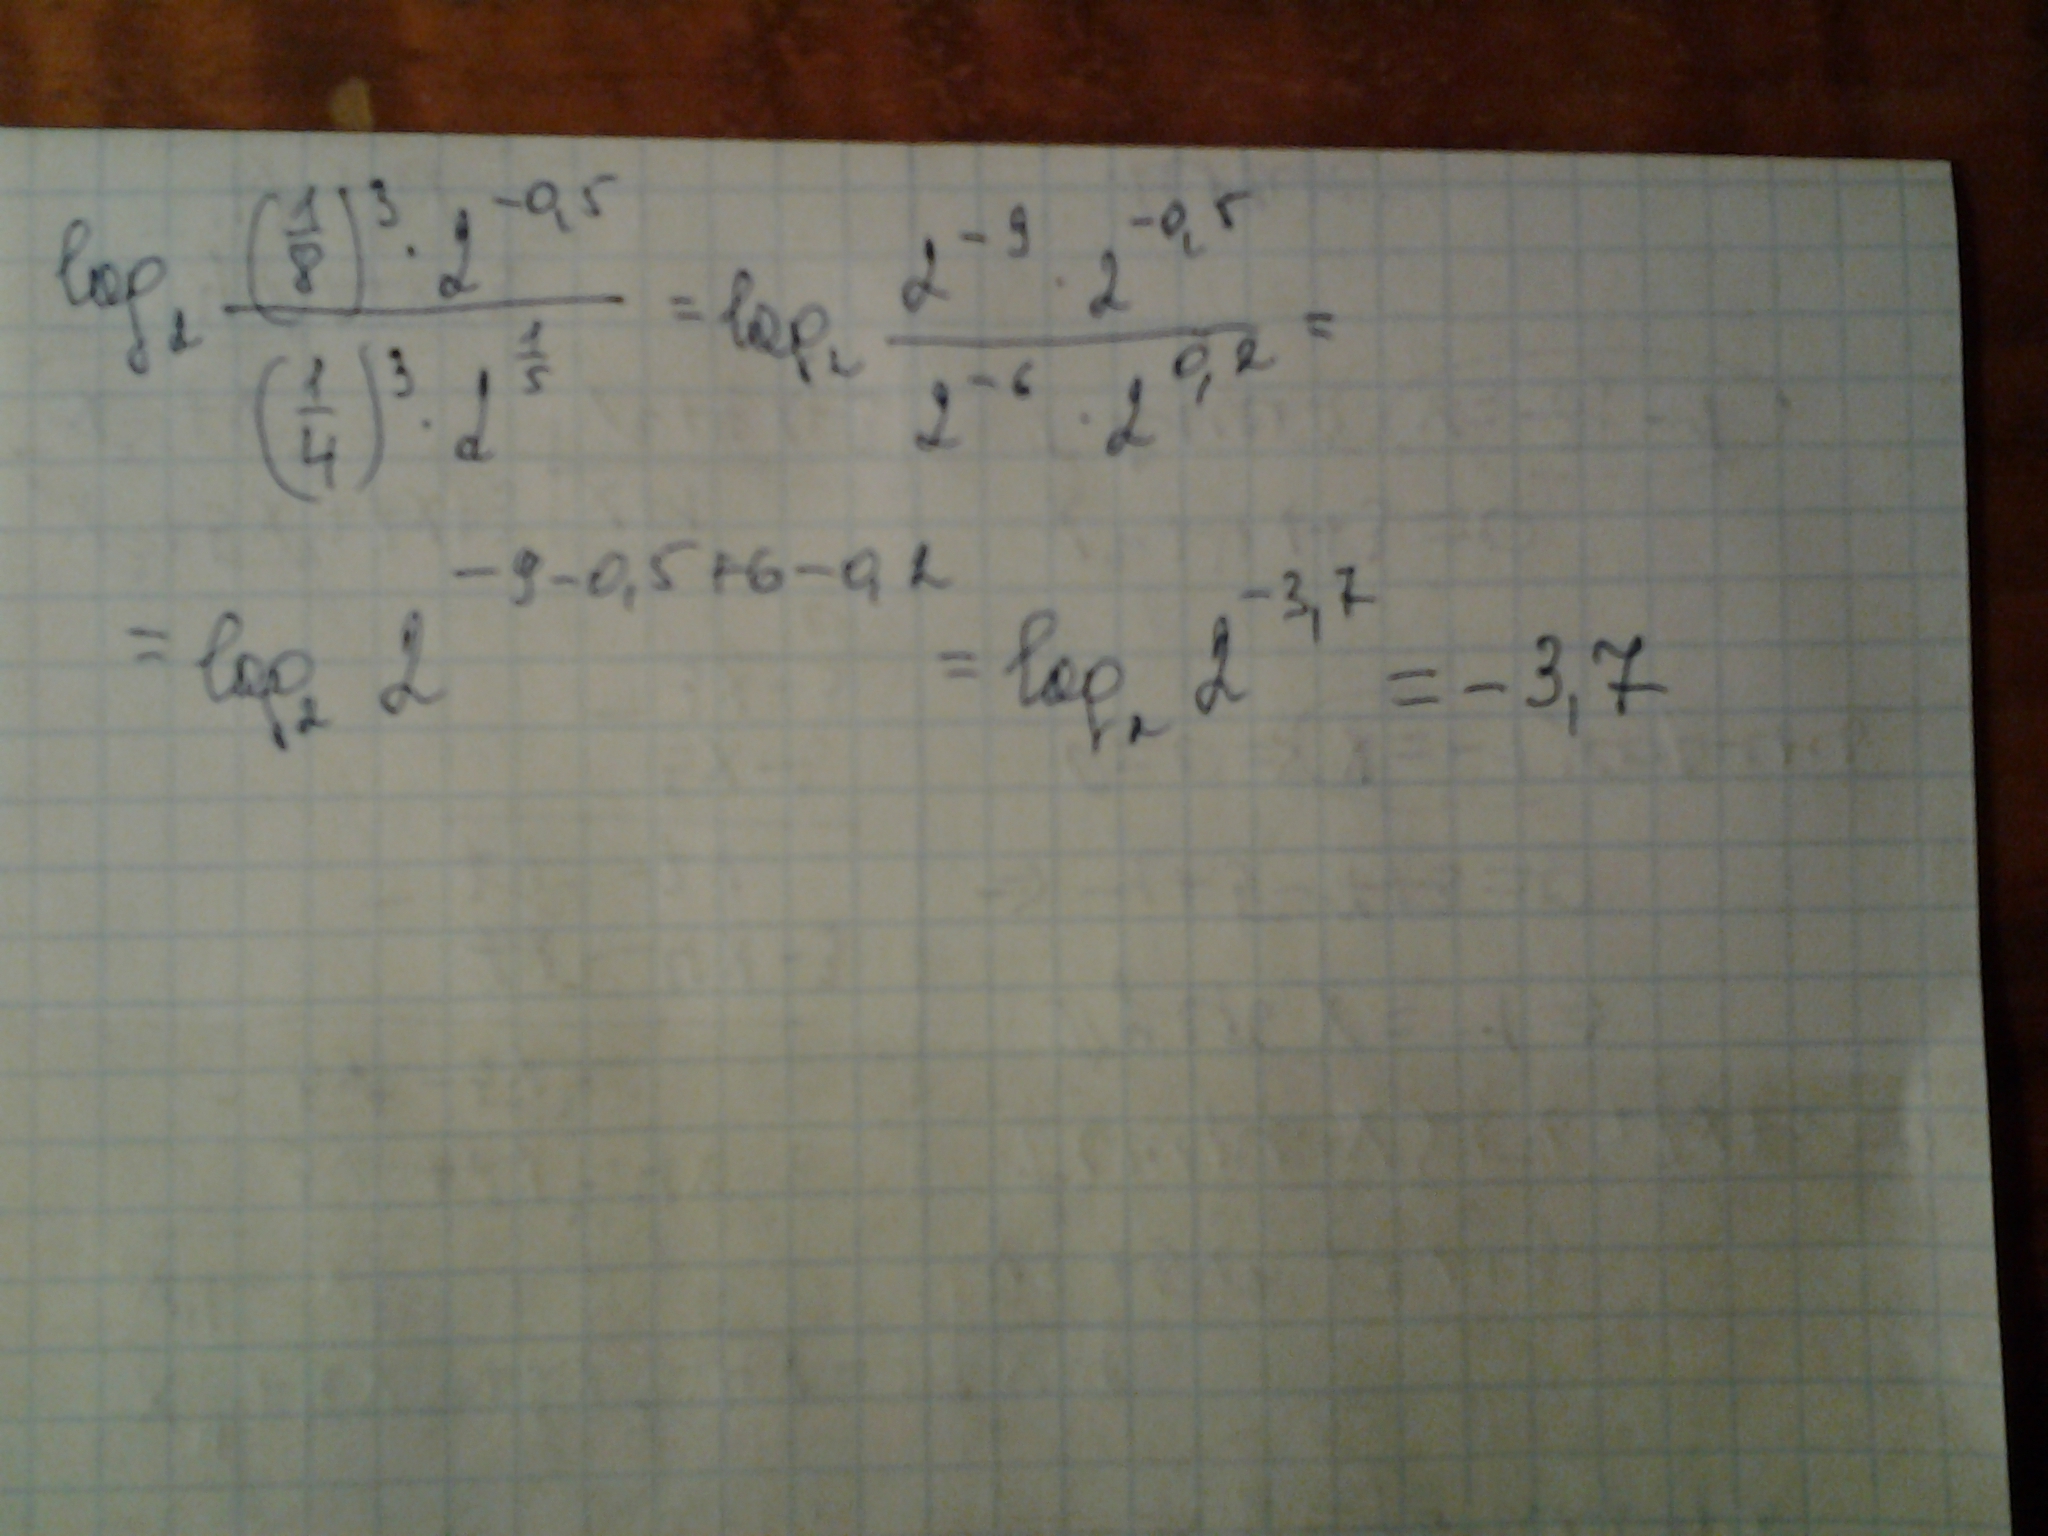 log₂ ((1/8)³ · 2^(-0,5)) / ((1/4)³ · 2^(1/5)) = log₂ (2^(-9) · 2^(-0,5)) / (2^(-6) · 2^(0,2)) =
= log₂ 2^(-9-0,5+6-0,2) = log₂ 2^(-3,7) = -3,7